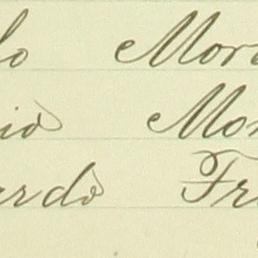 lo Mor
nio Mon
ardo Fr